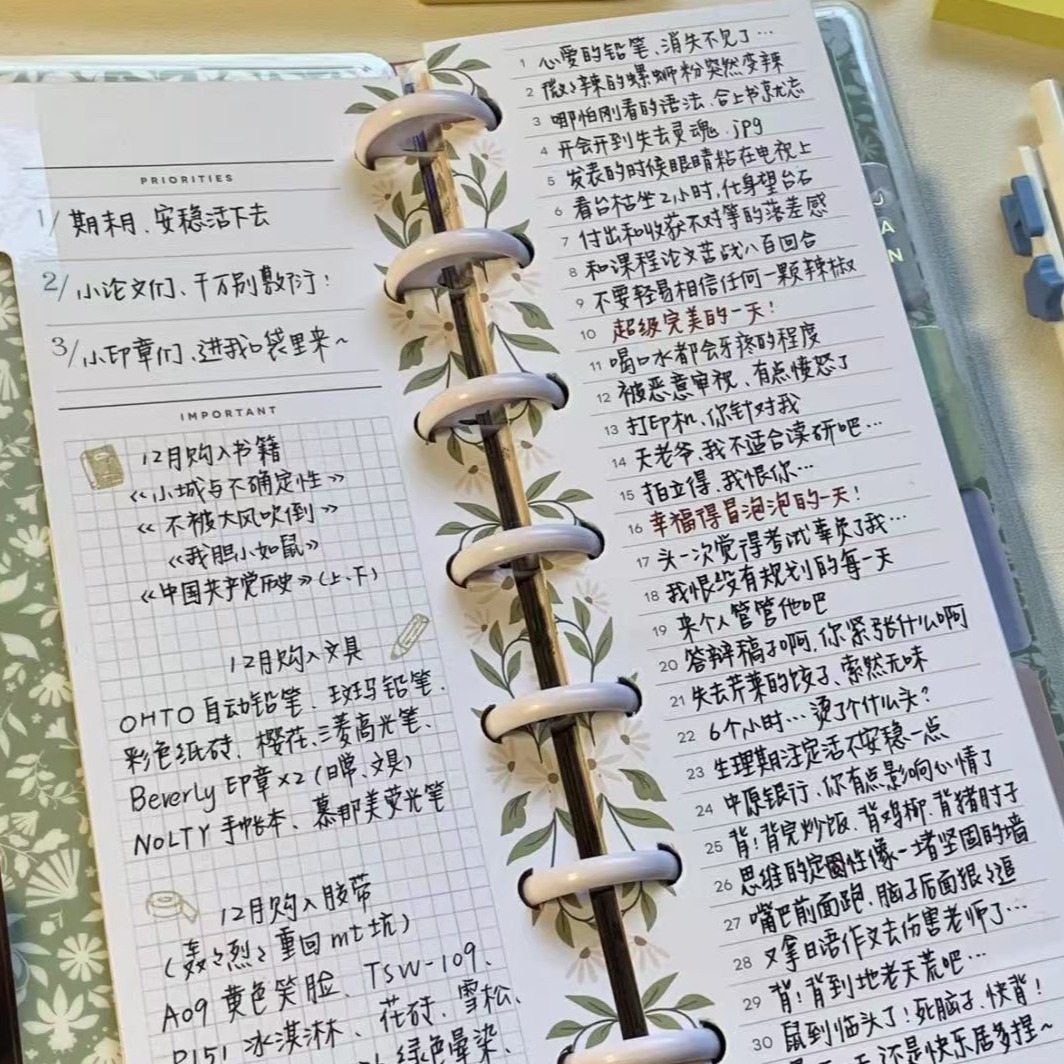 PRIORITIES
1/ 期末月、安稳活下去
2/ 小论文们、千万别敷衍！
3/ 小印章们、进我口袋里来～
IMPORTANT
12月购入书籍
《小城与不确定性》
《不被大风吹倒》
《我胆小如鼠》
《中国共产党历史》（上、下）
12月购入文具
OHTO 自动铅笔、斑玛铅笔、
彩色纸砖、樱花、三菱高光笔、
Beverly 印章×2（日常、文具）
NOLTY 手帐本、慕那美荧光笔
12月购入胶带
（轰々烈々重回mt坑）
A09 黄色笑脸、TSW-109、
P151 冰淇淋、花砖、雪松、
绿色晕染、
1 心爱的铅笔、消失不见了…
2 微々辣的螺蛳粉突然变辣
3 哪怕刚看的语法、合上书就忘
4 开会开到失去灵魂.jpg
5 发表的时候眼睛粘在电视上
6 看台枯坐2小时，化身望台石
7 付出和收获不对等的落差感
8 和课程论文苦战八百回合
9 不要轻易相信任何一颗辣椒
10 超级完美的一天！
11 喝口水都会牙疼的程度
12 被恶意审视、有点愤怒了
13 打印机、你针对我
14 天老爷、我不适合读研吧…
15 拍立得、我恨你…
16 幸福得冒泡泡的一天！
17 头一次觉得考试辜负了我…
18 我恨没有规划的每一天
19 来个人管管他吧
20 答辩稿子啊，你紧张什么啊
21 失去芹菜的饺子、索然无味
22 6个小时…烫了个什么头？
23 生理期注定活不安稳一点
24 中原银行、你有点影响心情了
25 背！背完炒饭、背鸡柳、背猪肘子
26 思维的定性像一堵坚固的墙
27 嘴巴前面跑、脑子后面狠々追
28 又拿日语作文去伤害老师了…
29 背！背到地老天荒吧…
30 鼠到临头了！死脑子、快背！
还是快乐居多捏～
A
N